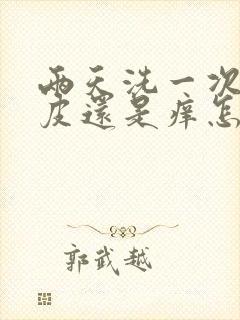 兩天洗一次
皮還是痒怎
郭武越